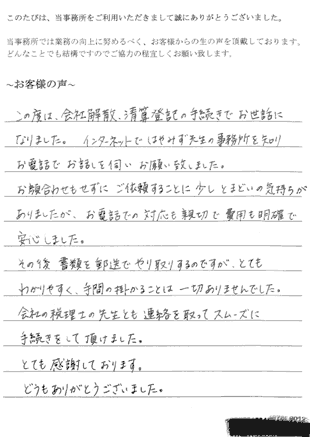 このたびは、当事務所をご利用いただきまして誠にありがとうございました。
当事務所では業務の向上に努めるべく、お客様からの生の声を頂戴しております。
どんなことでも結構ですのでご協力の程宜しくお願い致します。
~お客様の声~
この度は、会社解散、清算登記の手続きでお世話に
なりました。インターネットではやみず先生の事務所を知り
お電話でお話しを伺いお願い致しました。
お顔合わせもせずにご依頼することに少しとまどいの気持ちが
ありましたが、お電話での対応も親切で費用も明確で
安心しました。
その後書類を郵送でやり取りするのですが、とても
わかりやすく、手間の掛かることは一切ありませんでした。
会社の税理士の先生とも連絡を取ってスムーズに
手続きをして頂けました。
とても感謝しております。
どうもありがとうございました。